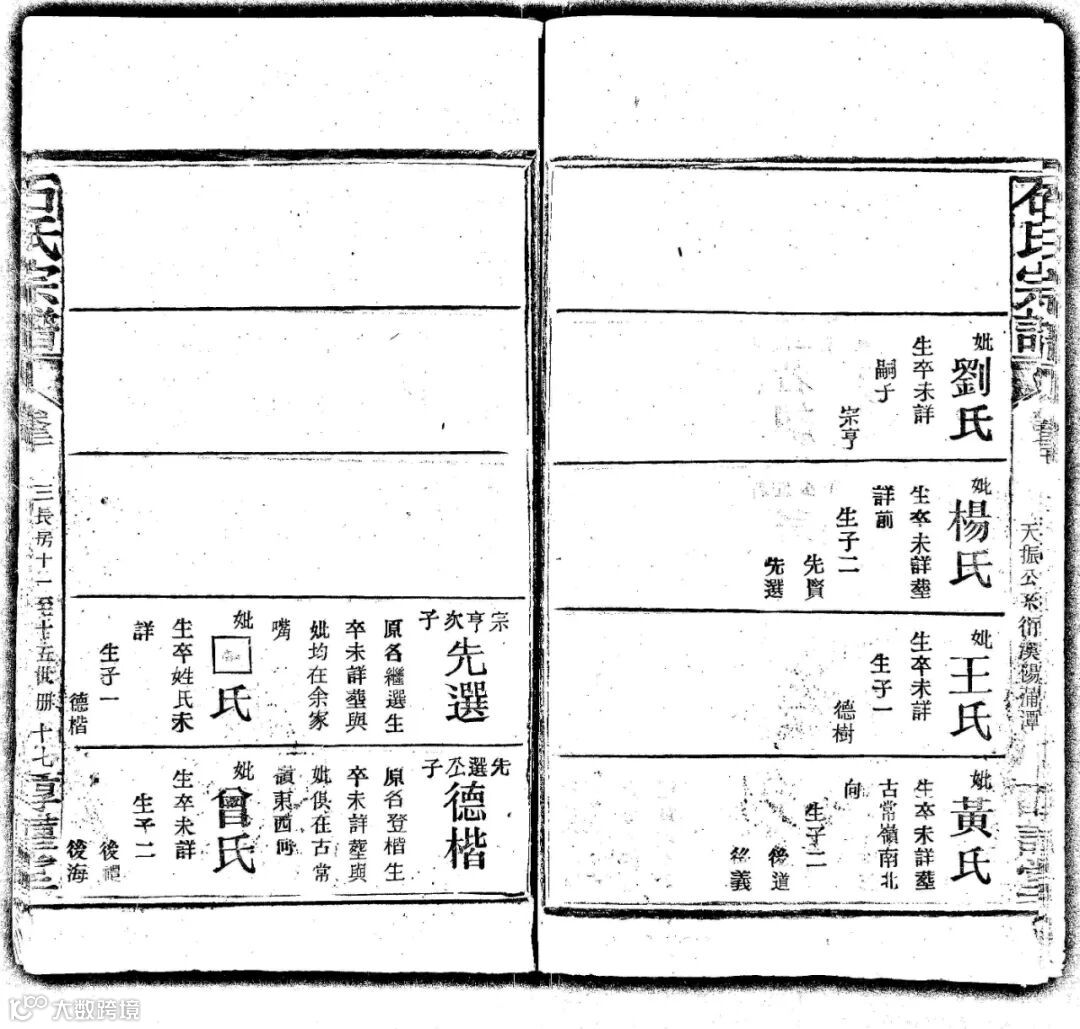 石氏宗譜
天振公系衍漢陽蒲潭
妣劉氏
生卒未詳
嗣子
宗亨
妣楊氏
生卒未詳塟
詳前
生子二
先賢
先選
妣王氏
生卒未詳
生子一
德樹
妣黃氏
生卒未詳塟
古常嶺南北
向
生子二
後道
後義
宗亨次子先選
原名繼選生
卒未詳塟與
妣均在余家
嘴
妣□氏
生卒姓氏未
詳
生子一
德楷
先選公子德楷
原名登楷生
卒未詳塟與
妣俱在古常
嶺東西向
妣曾氏
生卒未詳
生子二
後海
石氏宗譜
卷三
三長房十一至十五世册
十七
大数跨境